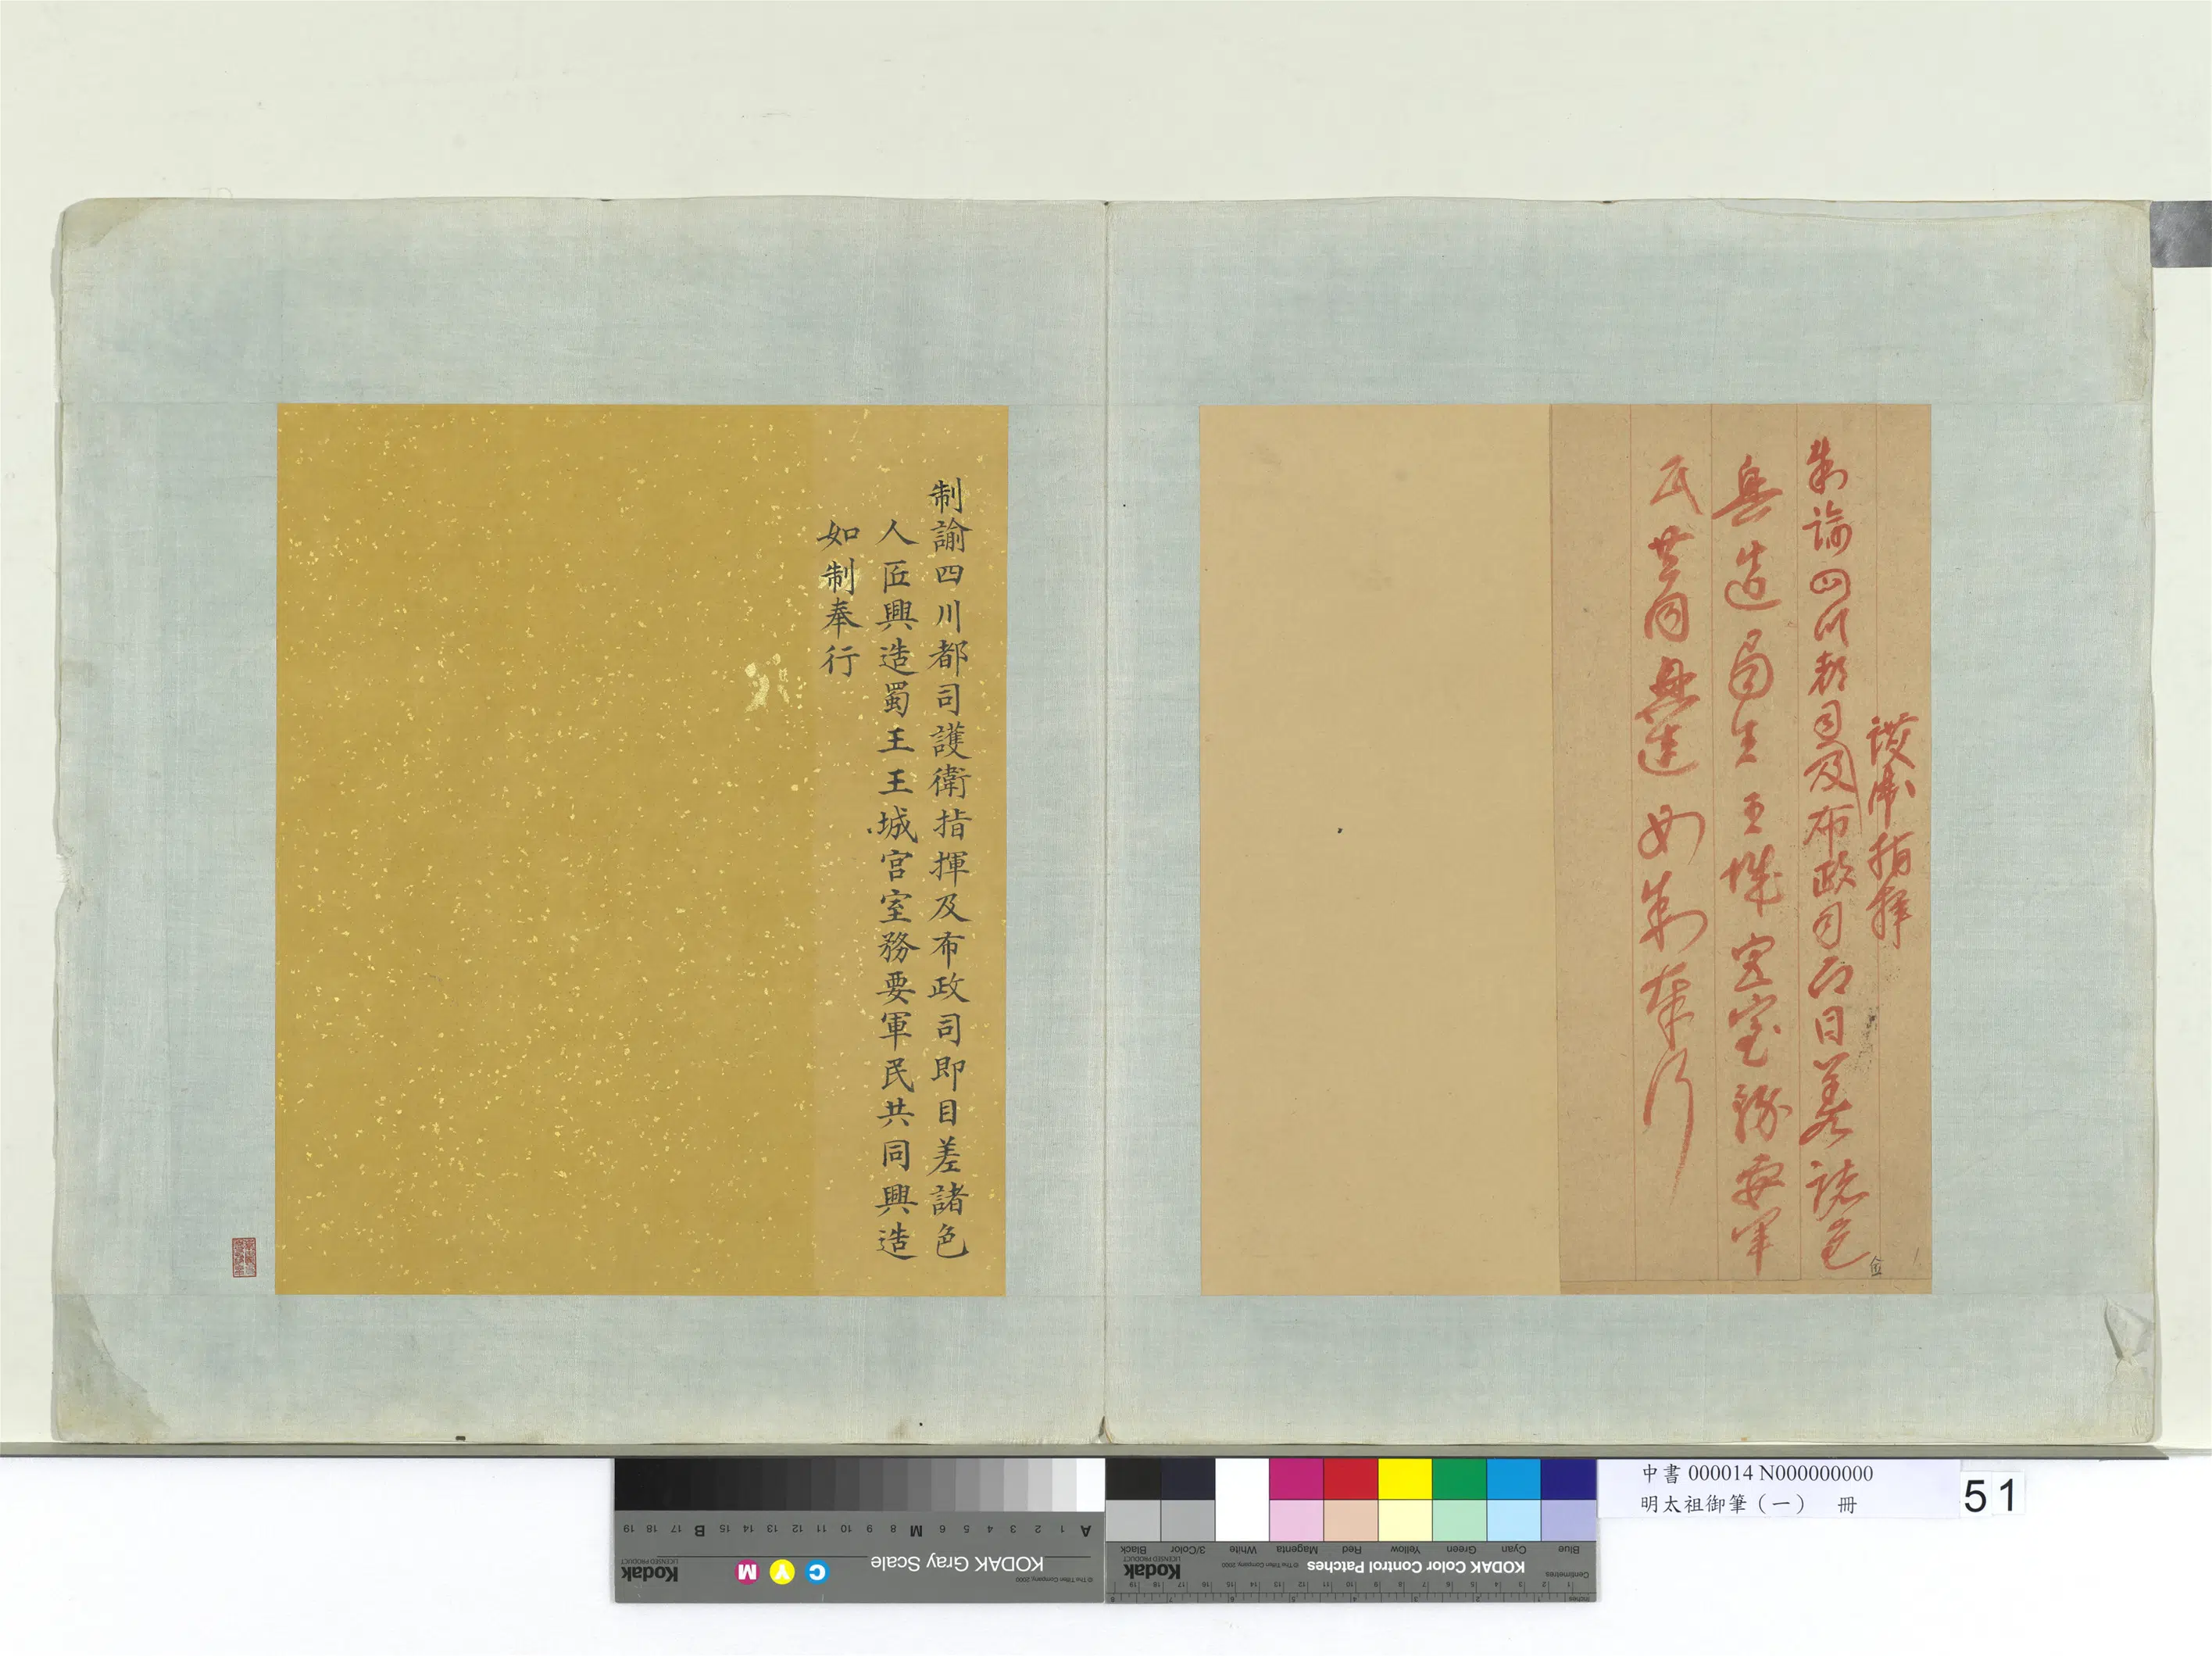 護衛指揮
制諭四川都司及布政司即目差諸色
興造蜀王王城宮室務要軍
民共同興造如制奉行
制諭四川都司護衛指揮及布政司即目差諸色
人匠興造蜀王王城宮室務要軍民共同興造
如制奉行
中書000014 N000000000
明太祖御筆（一） 冊
51
KODAK Gray Scale
Kodak
LICENSED PRODUCT
© The Tiffen Company, 2000
A 1 2 3 4 5 6 M 8 9 10 11 12 13 14 15 B 17 18 19
C Y M
KODAK Color Control Patches
Kodak
LICENSED PRODUCT
© The Tiffen Company, 2000
Blue Cyan Green Yellow Red Magenta White 3/Color Black
Centimetres
Inches